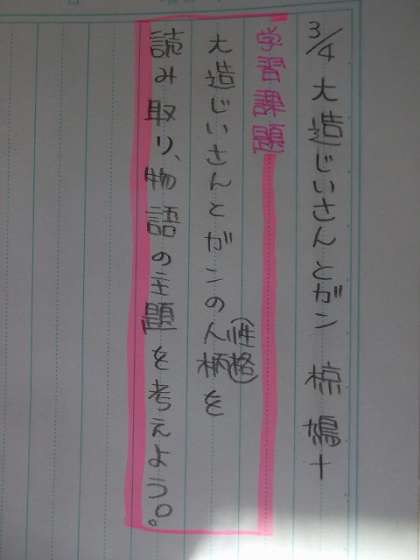 3/4 大造じいさんとガン 椋鳩十
学習課題
大造じいさんとガンの人柄(性格)を
読み取り、物語の主題を考えよう。